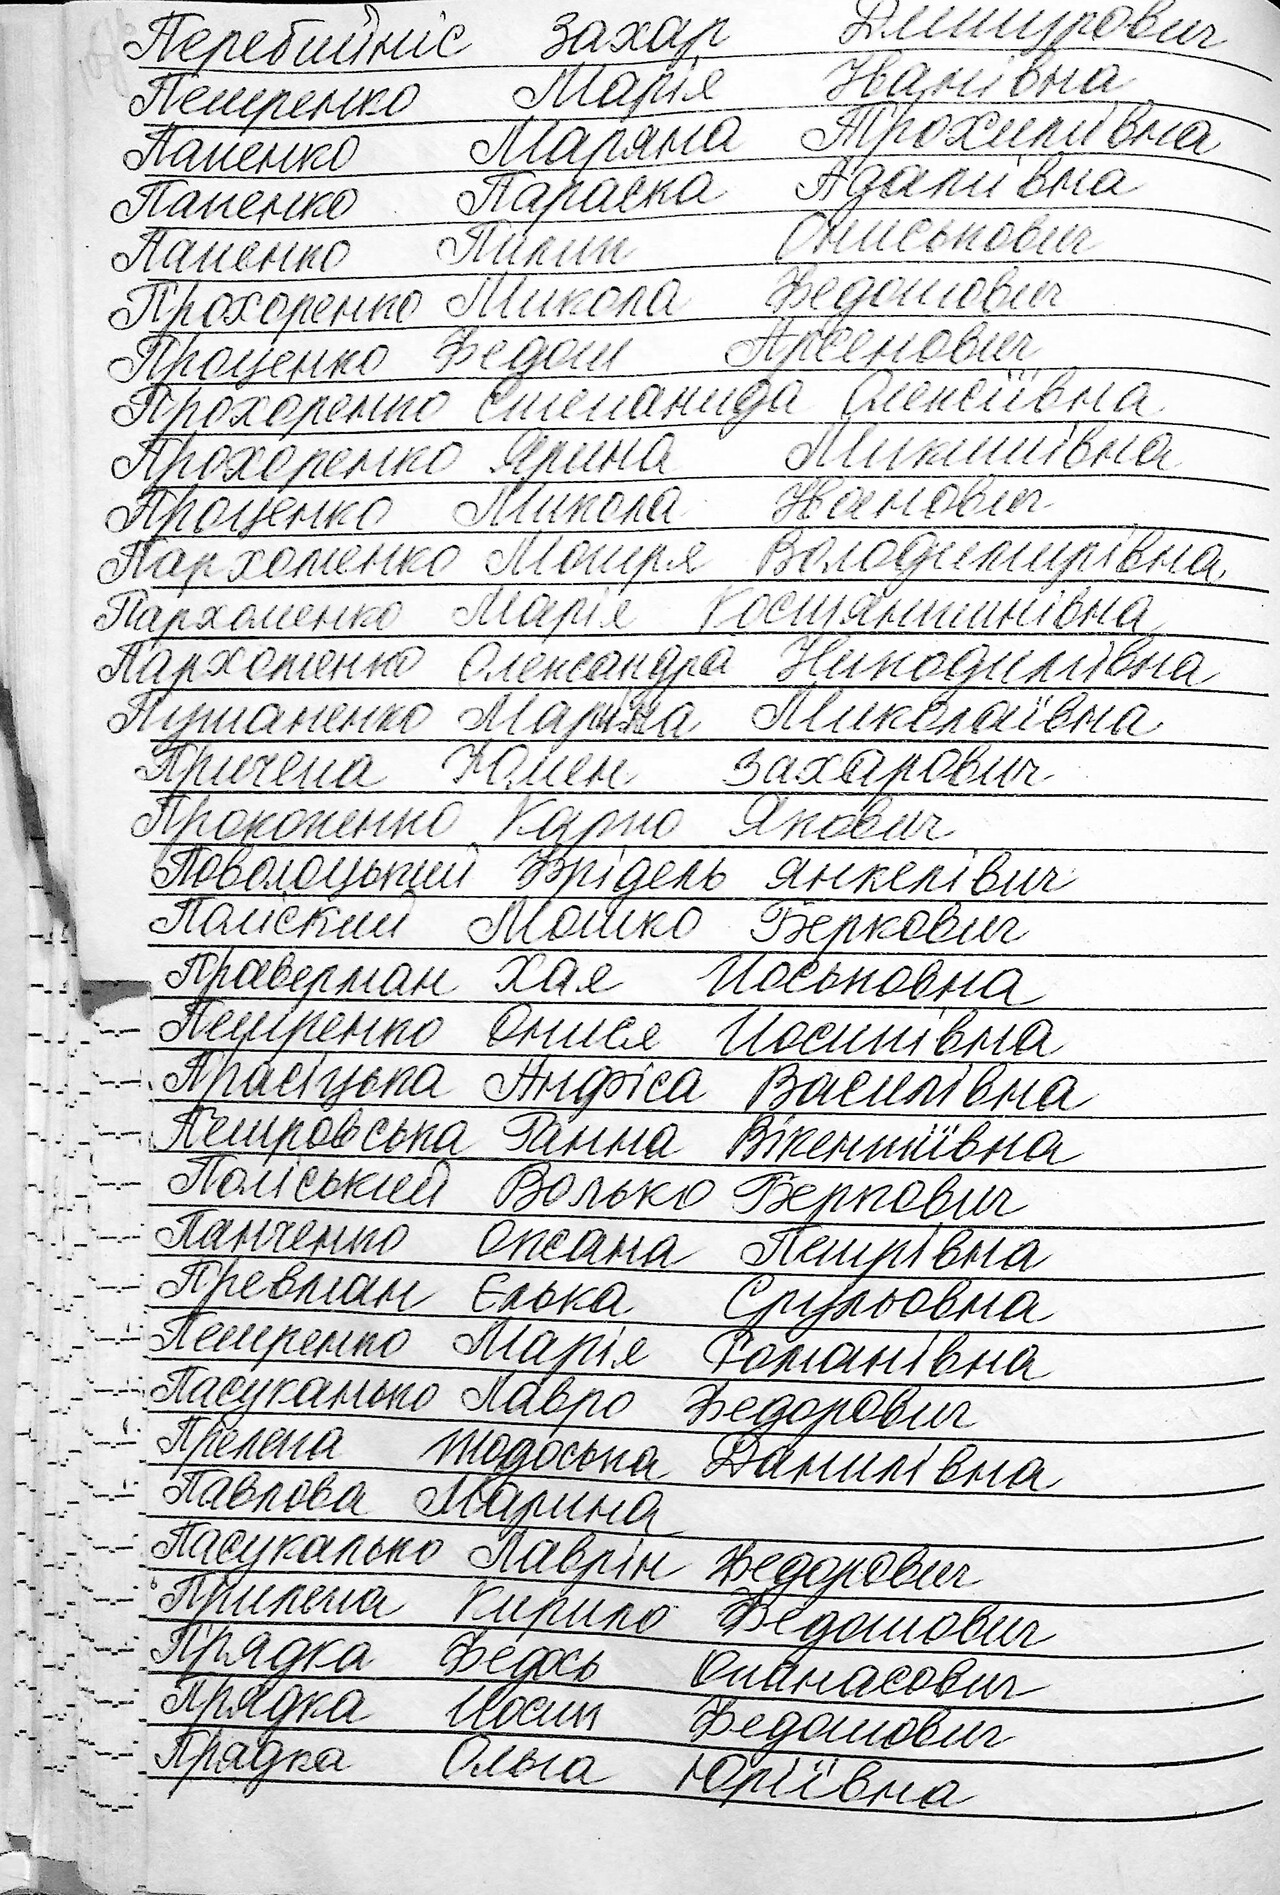 Перебийніс Захар Дмитрович
Петренко Марія Іванівна
Папенко Маряна Трохимівна
Папенко Параска Адамівна
Папенко ПилипОниськович
Прохоренко Микола Федотович
Проценко Федот Арсенович
Прохоренко Степанида Олексіївна
Прохоренко Ярина Микитівна
Проценко Микола Іванович
Пархоменко Мотря Володимирівна
Пархоменко Марія Костянтинівна
Пархоменко Олександра Никодимівна
Пушаненко Марина Миколаївна
Причепа Юмен Захарович
Прокопенко Карпо Якович
Поволоцький Фрідель Янкелівич
Поліский Мошко Беркович
Праверман Хая Йоськовна
Петренко Онися Йосипівна
Прасіцька Анфіса Василівна
Петровська Ганна Вікентіївна
Поліський Волько Беркович
Панченко Оксана Петрівна
Превман Єлька Срульовна
Петренко Марія Романівна
Пасуканько Лавро Федорович
Прилепа Тодоська Данилівна
Павлова Марина
Пасукалько Лаврін Федорович
Прилепа Кирило Федотович
Прядка Федось Опанасович
Прядка Йосип Федотович
Прядка Ольга Юріївна